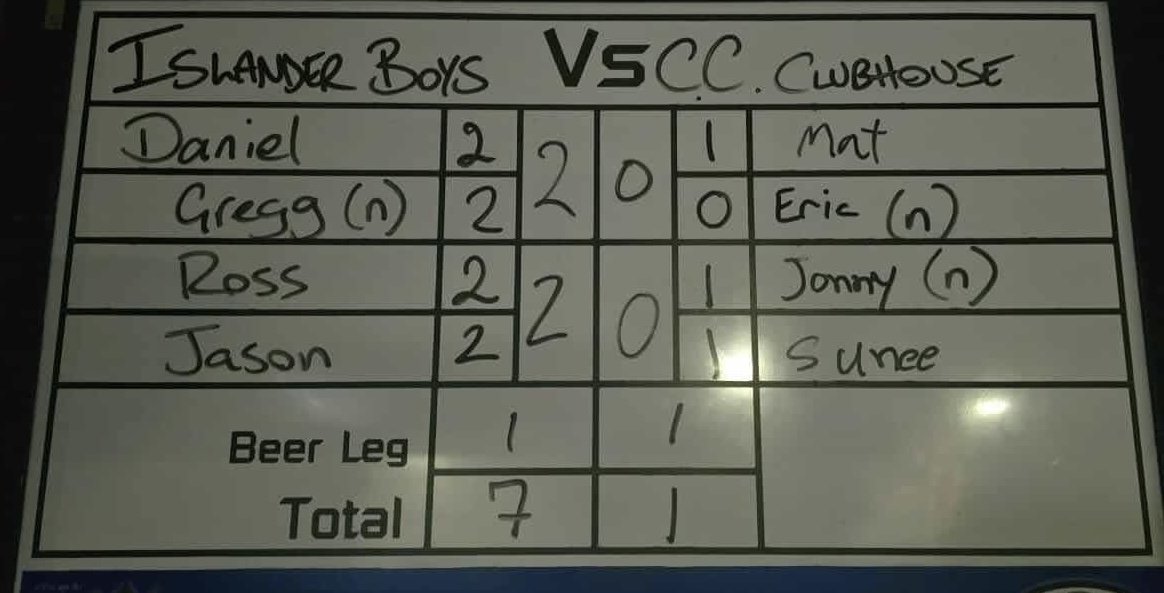 ISLANDER BOYS VS C.C. CLUBHOUSE
Daniel 2 2 0 1 Mat
Gregg (n) 2 0 Eric (n)
Ross 2 2 0 1 Jonny (n)
Jason 2 1 Sunee
Beer Leg 1 1
Total 7 1